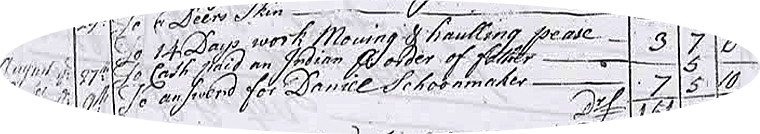 To a Deers Skin
To 14 Days work Mowing & haulling pease 3 7
August 27th To Cash paid an Indian ℘ order of father 5
9th To answerd for Daniel Schoonmaker 7 5 10